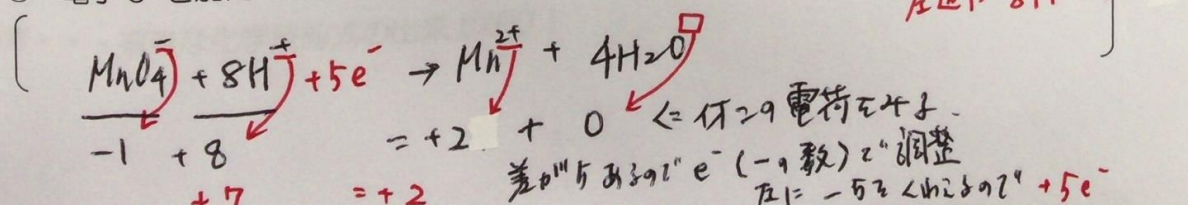 MnO₄⁻ + 8H⁺ + 5e⁻ → Mn²⁺ + 4H₂O
-1 +8 = +2 + 0 ⇐ 電荷をみる.
+7 = +2 差が5あるので e⁻ (-の数) で調整
左に -5をくわえるので +5e⁻